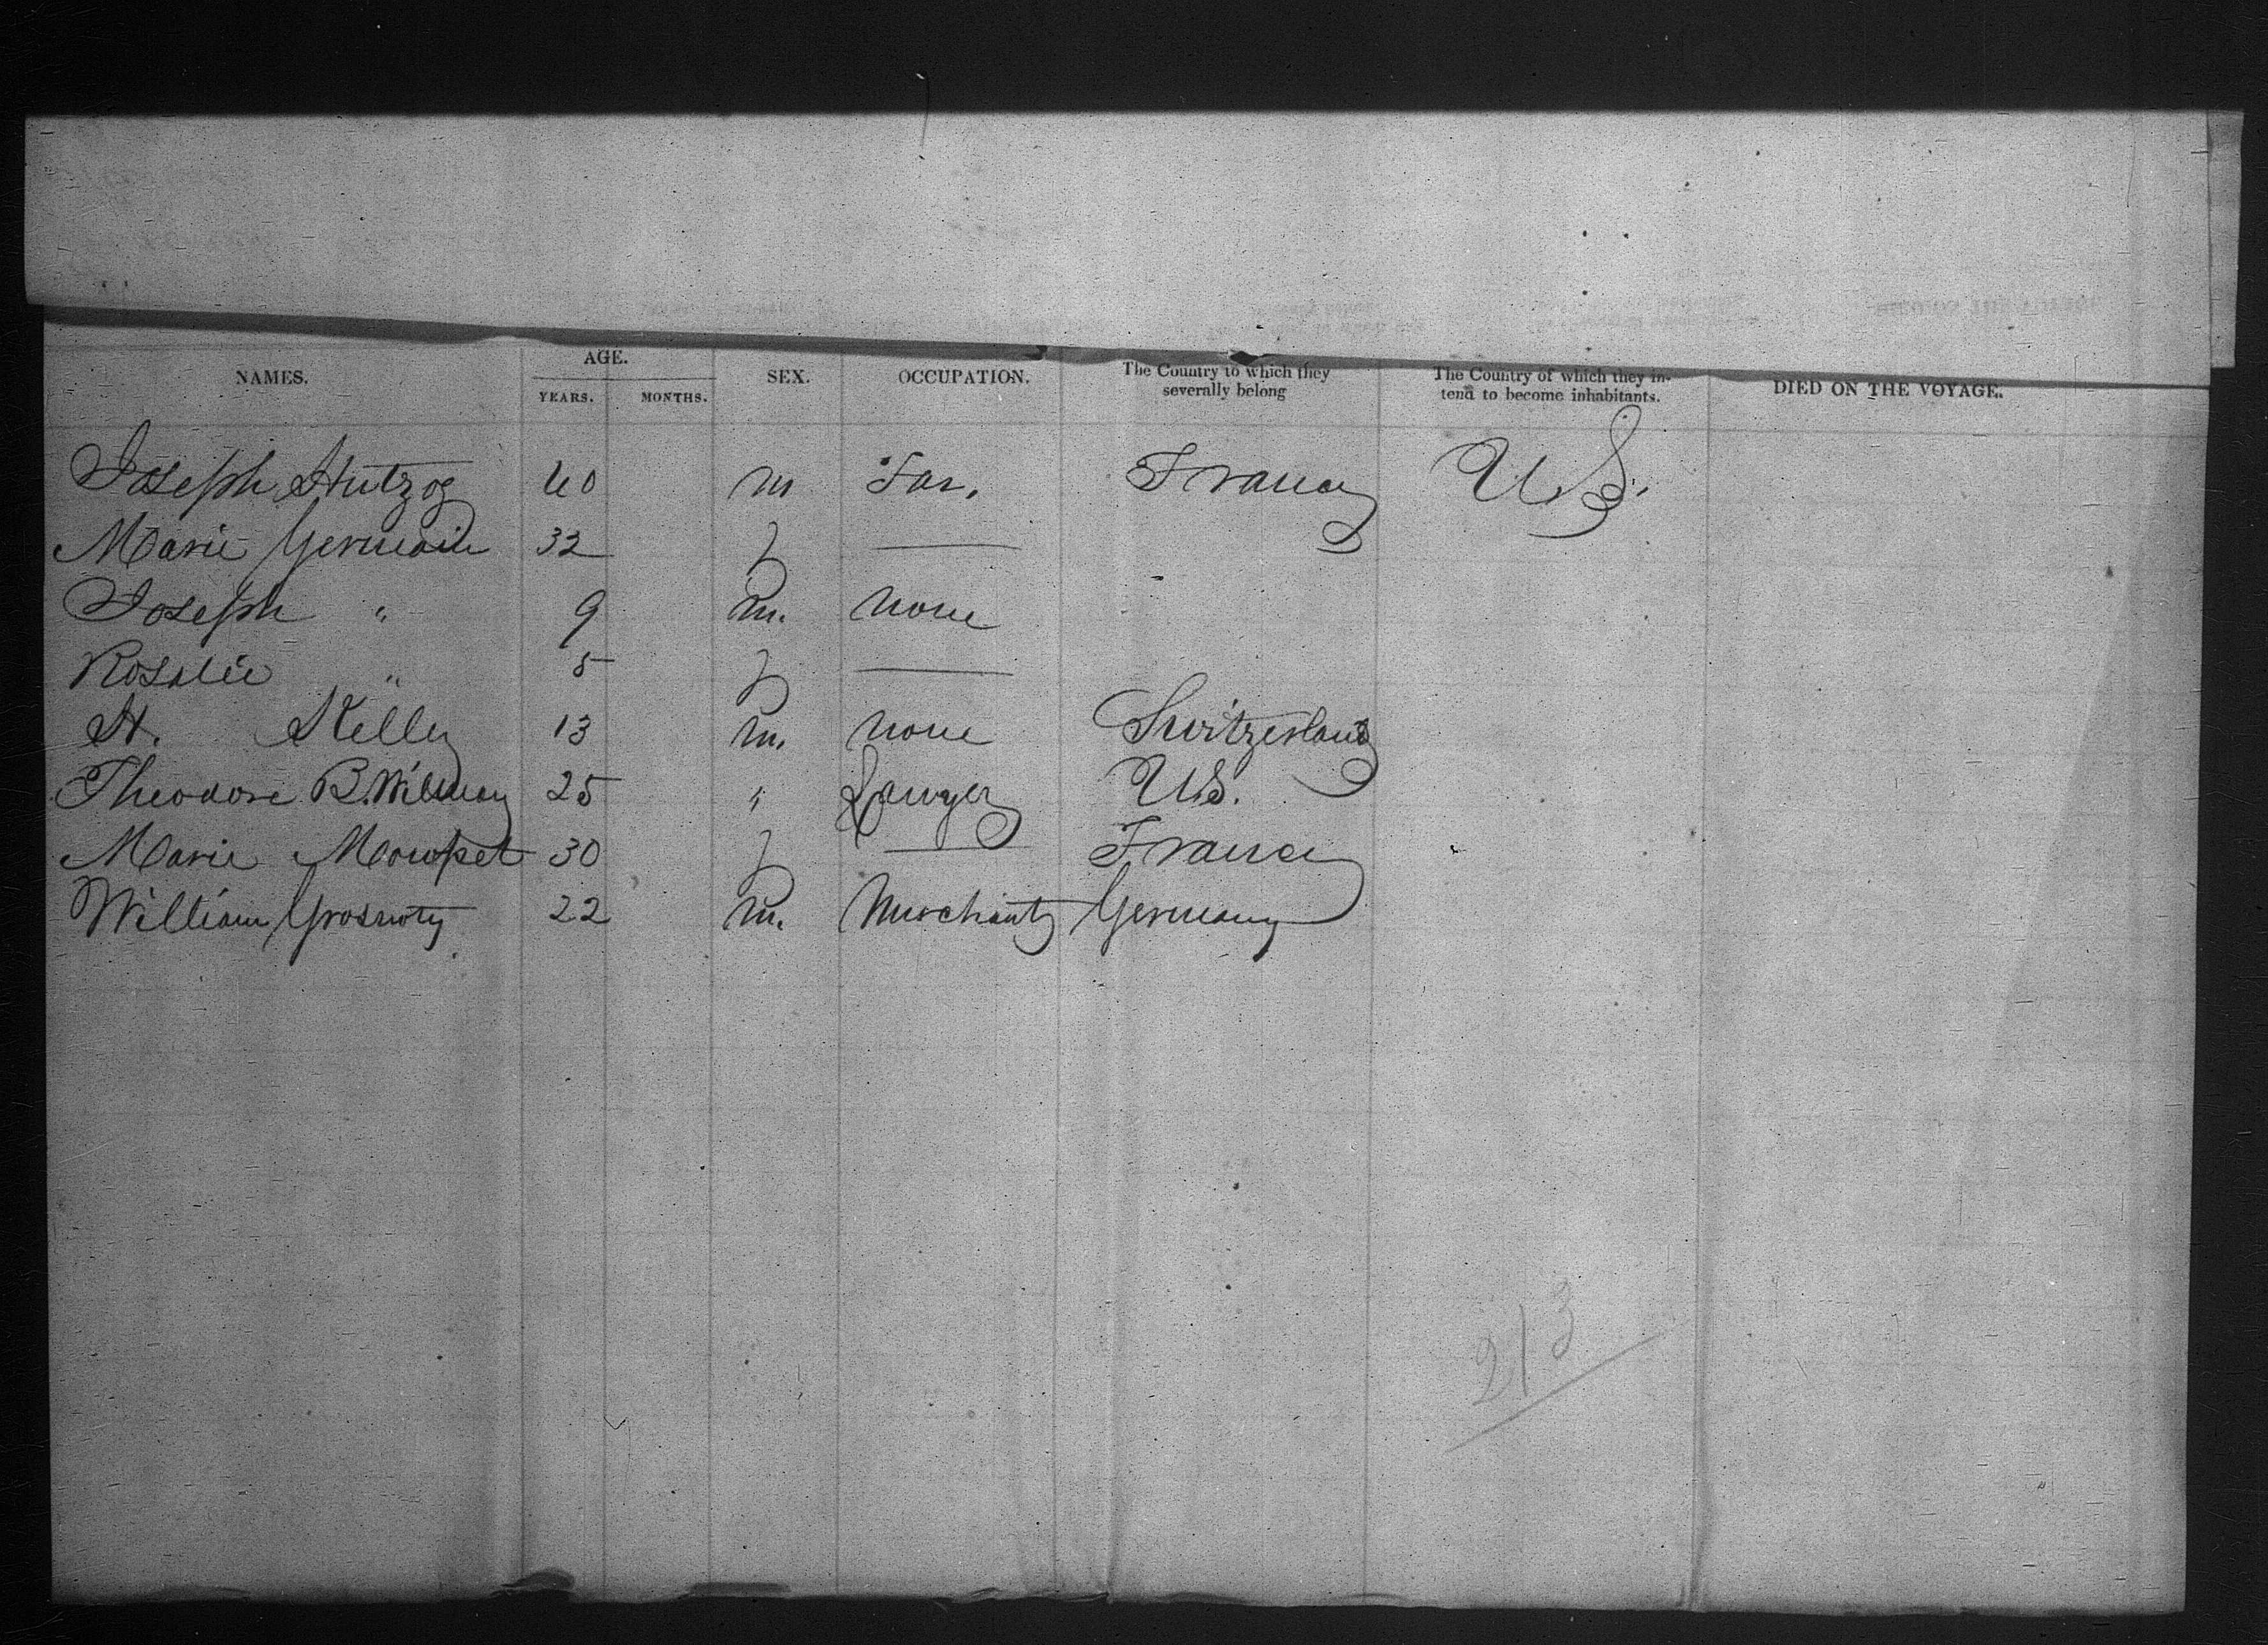 NAMES. AGE. SEX. OCCUPATION. The Country to which they severally belong The Country of which they intend to become inhabitants. DIED ON THE VOYAGE.
YEARS. MONTHS.
Joseph Hutzog 40 m Far. France U.S.
Marie Germain 32 f
Joseph " 9 m. none
Rosalie " 5 f
H. Kelly 13 m. none Switzerland
Theodore B. 25 " Lawyer U.S.
Marie 30 f France
William 22 m. Merchant Germany
213